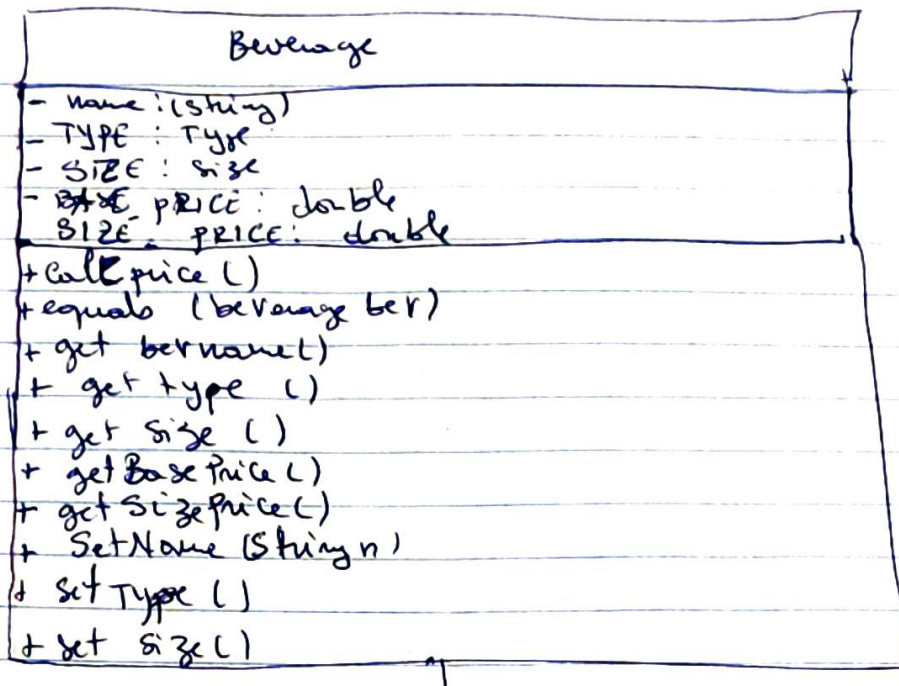 Beverage
- name : (String)
- TYPE : Type
- SIZE : Size
- BASE PRICE : double
SIZE_ PRICE : double
+ Calcprice ()
+ equals (beverage bev)
+ get bevname()
+ get type ()
+ get Size ()
+ getBasePrice()
+ getSizePrice()
+ SetName (String n)
+ set Type ()
+ set Size()